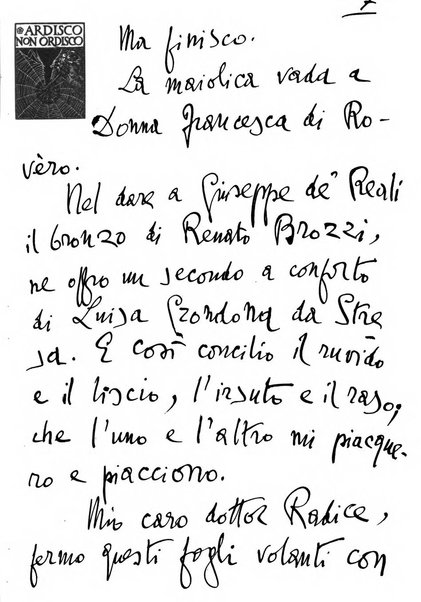 7
ARDISCO
NON ORDISCO
Ma finisco.
La maiolica vada a
Donna Francesca di Ro-
vèro.
Nel dare a Giuseppe de' Reali
il bronzo di Renato Brozzi,
ne offro un secondo a conforto
di Luisa Grondona da Stre
sa. E così concilio il ruvido
e il liscio, l'irsuto e il raso;
che l'uno e l'altro mi piacque-
ro e piacciono.
Mio caro dottor Radice,
fermo questi fogli volanti con